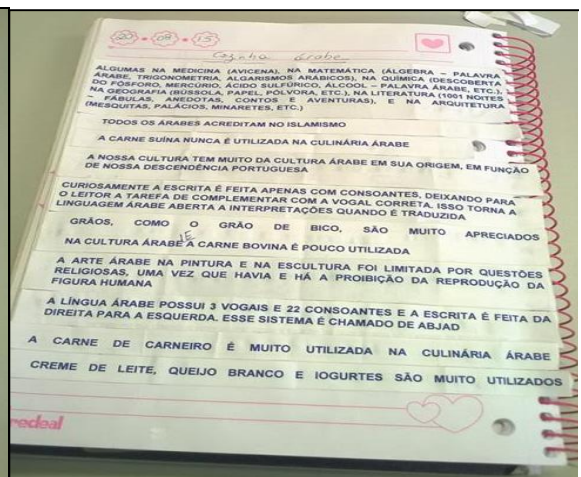 20 • 08 • 15
Cozinha árabe
ALGUMAS NA MEDICINA (AVICENA), NA MATEMÁTICA (ÁLGEBRA – PALAVRA
ÁRABE, TRIGONOMETRIA, ALGARISMOS ARÁBICOS), NA QUÍMICA (DESCOBERTA
DO FÓSFORO, MERCÚRIO, ÁCIDO SULFÚRICO, ÁLCOOL – PALAVRA ÁRABE, ETC.),
NA GEOGRAFIA (BÚSSOLA, PAPEL, PÓLVORA, ETC.), NA LITERATURA (1001 NOITES
– FÁBULAS, ANEDOTAS, CONTOS E AVENTURAS), E NA ARQUITETURA
(MESQUITAS, PALÁCIOS, MINARETES, ETC.)
TODOS OS ÁRABES ACREDITAM NO ISLAMISMO
A CARNE SUÍNA NUNCA É UTILIZADA NA CULINÁRIA ÁRABE
A NOSSA CULTURA TEM MUITO DA CULTURA ÁRABE EM SUA ORIGEM, EM FUNÇÃO
DE NOSSA DESCENDÊNCIA PORTUGUESA
CURIOSAMENTE A ESCRITA É FEITA APENAS COM CONSOANTES, DEIXANDO PARA
O LEITOR A TAREFA DE COMPLEMENTAR COM A VOGAL CORRETA. ISSO TORNA A
LINGUAGEM ÁRABE ABERTA A INTERPRETAÇÕES QUANDO É TRADUZIDA
GRÃOS, COMO O GRÃO DE BICO, SÃO MUITO APRECIADOS
NA CULTURA ÁRABE A CARNE BOVINA É POUCO UTILIZADA
A ARTE ÁRABE NA PINTURA E NA ESCULTURA FOI LIMITADA POR QUESTÕES
RELIGIOSAS, UMA VEZ QUE HAVIA E HÁ A PROIBIÇÃO DA REPRODUÇÃO DA
FIGURA HUMANA
A LÍNGUA ÁRABE POSSUI 3 VOGAIS E 22 CONSOANTES E A ESCRITA É FEITA DA
DIREITA PARA A ESQUERDA. ESSE SISTEMA É CHAMADO DE ABJAD
A CARNE DE CARNEIRO É MUITO UTILIZADA NA CULINÁRIA ÁRABE
CREME DE LEITE, QUEIJO BRANCO E IOGURTES SÃO MUITO UTILIZADOS
redeal